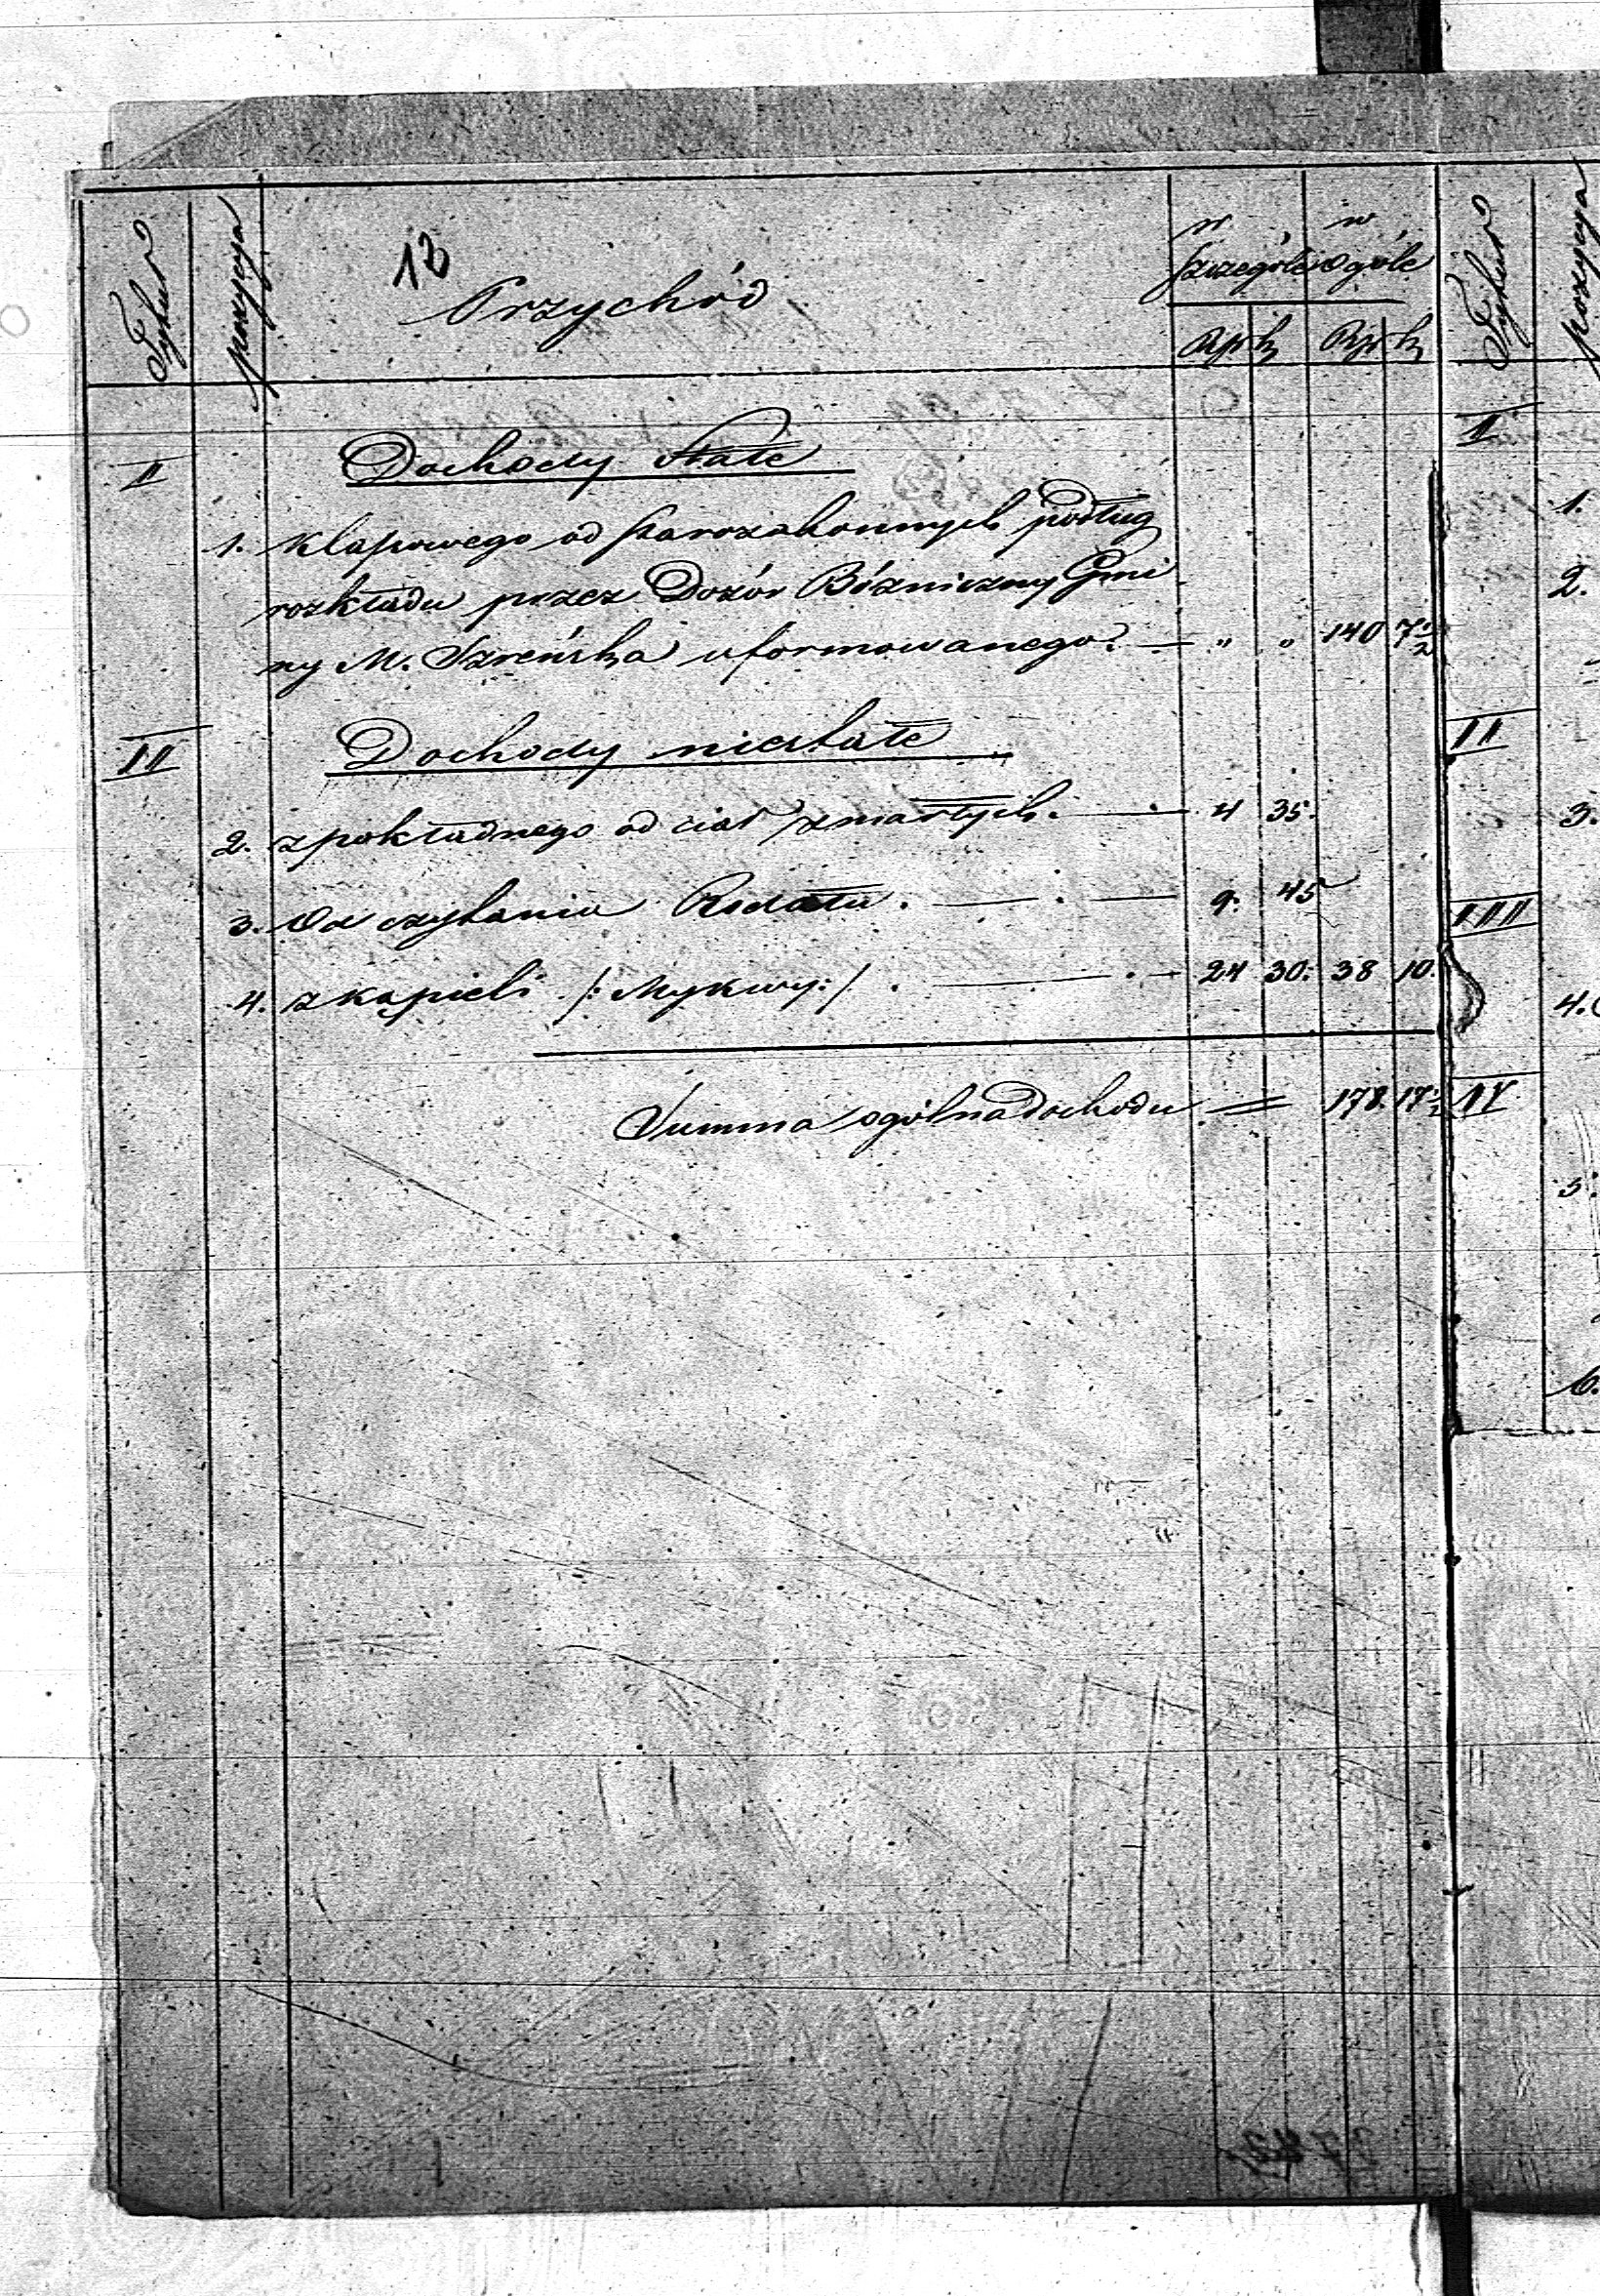 13
Tytuł pozycya Przychód w szczególe w ogóle Tytuł pozycya
Rsr k Rsr k
I Dochody stałe
1. Klapowego od starozakonnych podług
rozkładu przez Dozór Bóżniczny Gmi
ny M. Szreńska uformowanego. — „ „ 140 7½
II Dochody niestałe
2. z pokładnego od ciał zmarłych. — 4 35.
3. Od czytania Rodału. — . — 9. 45
4. z kąpieli /: Mykwy :/ . — . — 24 30. 38 10.
Summa ogólna dochodu = 178. 17½
I
1.
2.
II
3.
III
4.
IV
5.
6.